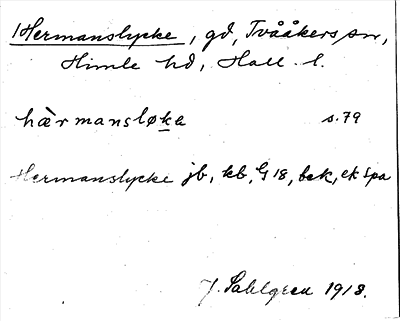 Hermanslycke, gd, Tvååkers sn,
Himle hd, Hall. l.
hærmansløke s. 79
Hermanslycke jb, kb, G 18, bek, ek Spa
J. Sahlgren 1918.